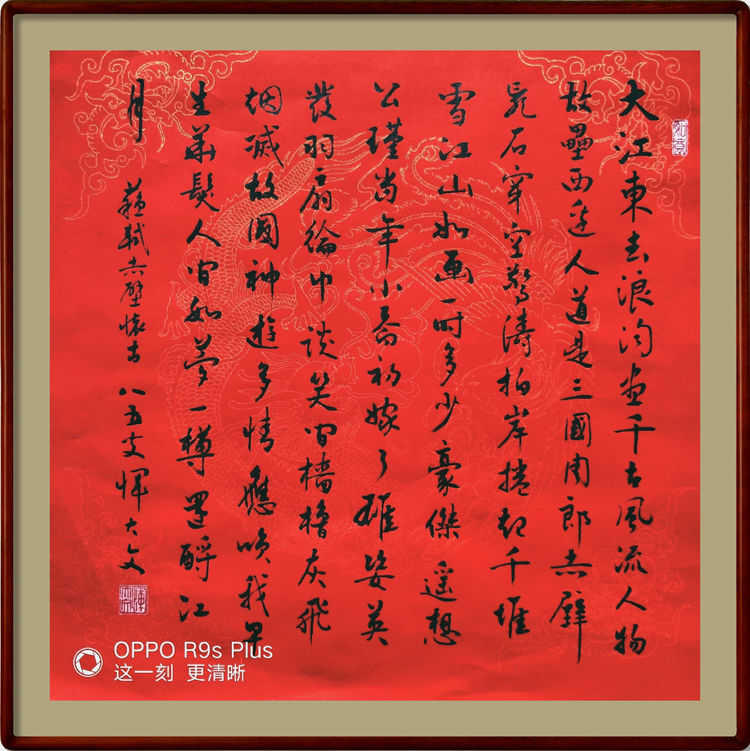 大江東去浪淘盡千古風流人物
故壘西邊人道是三國周郎赤壁
亂石穿空驚濤拍岸捲起千堆
雪江山如画一时多少豪傑遥想
公瑾当年小喬初嫁了雄姿英
發羽扇綸巾談笑间檣櫓灰飛
烟滅故國神遊多情應笑我早
生華髮人间如夢一樽還酹江
月
蘇軾赤壁懷古 八五叟惲大文
OPPO R9s Plus
这一刻 更清晰